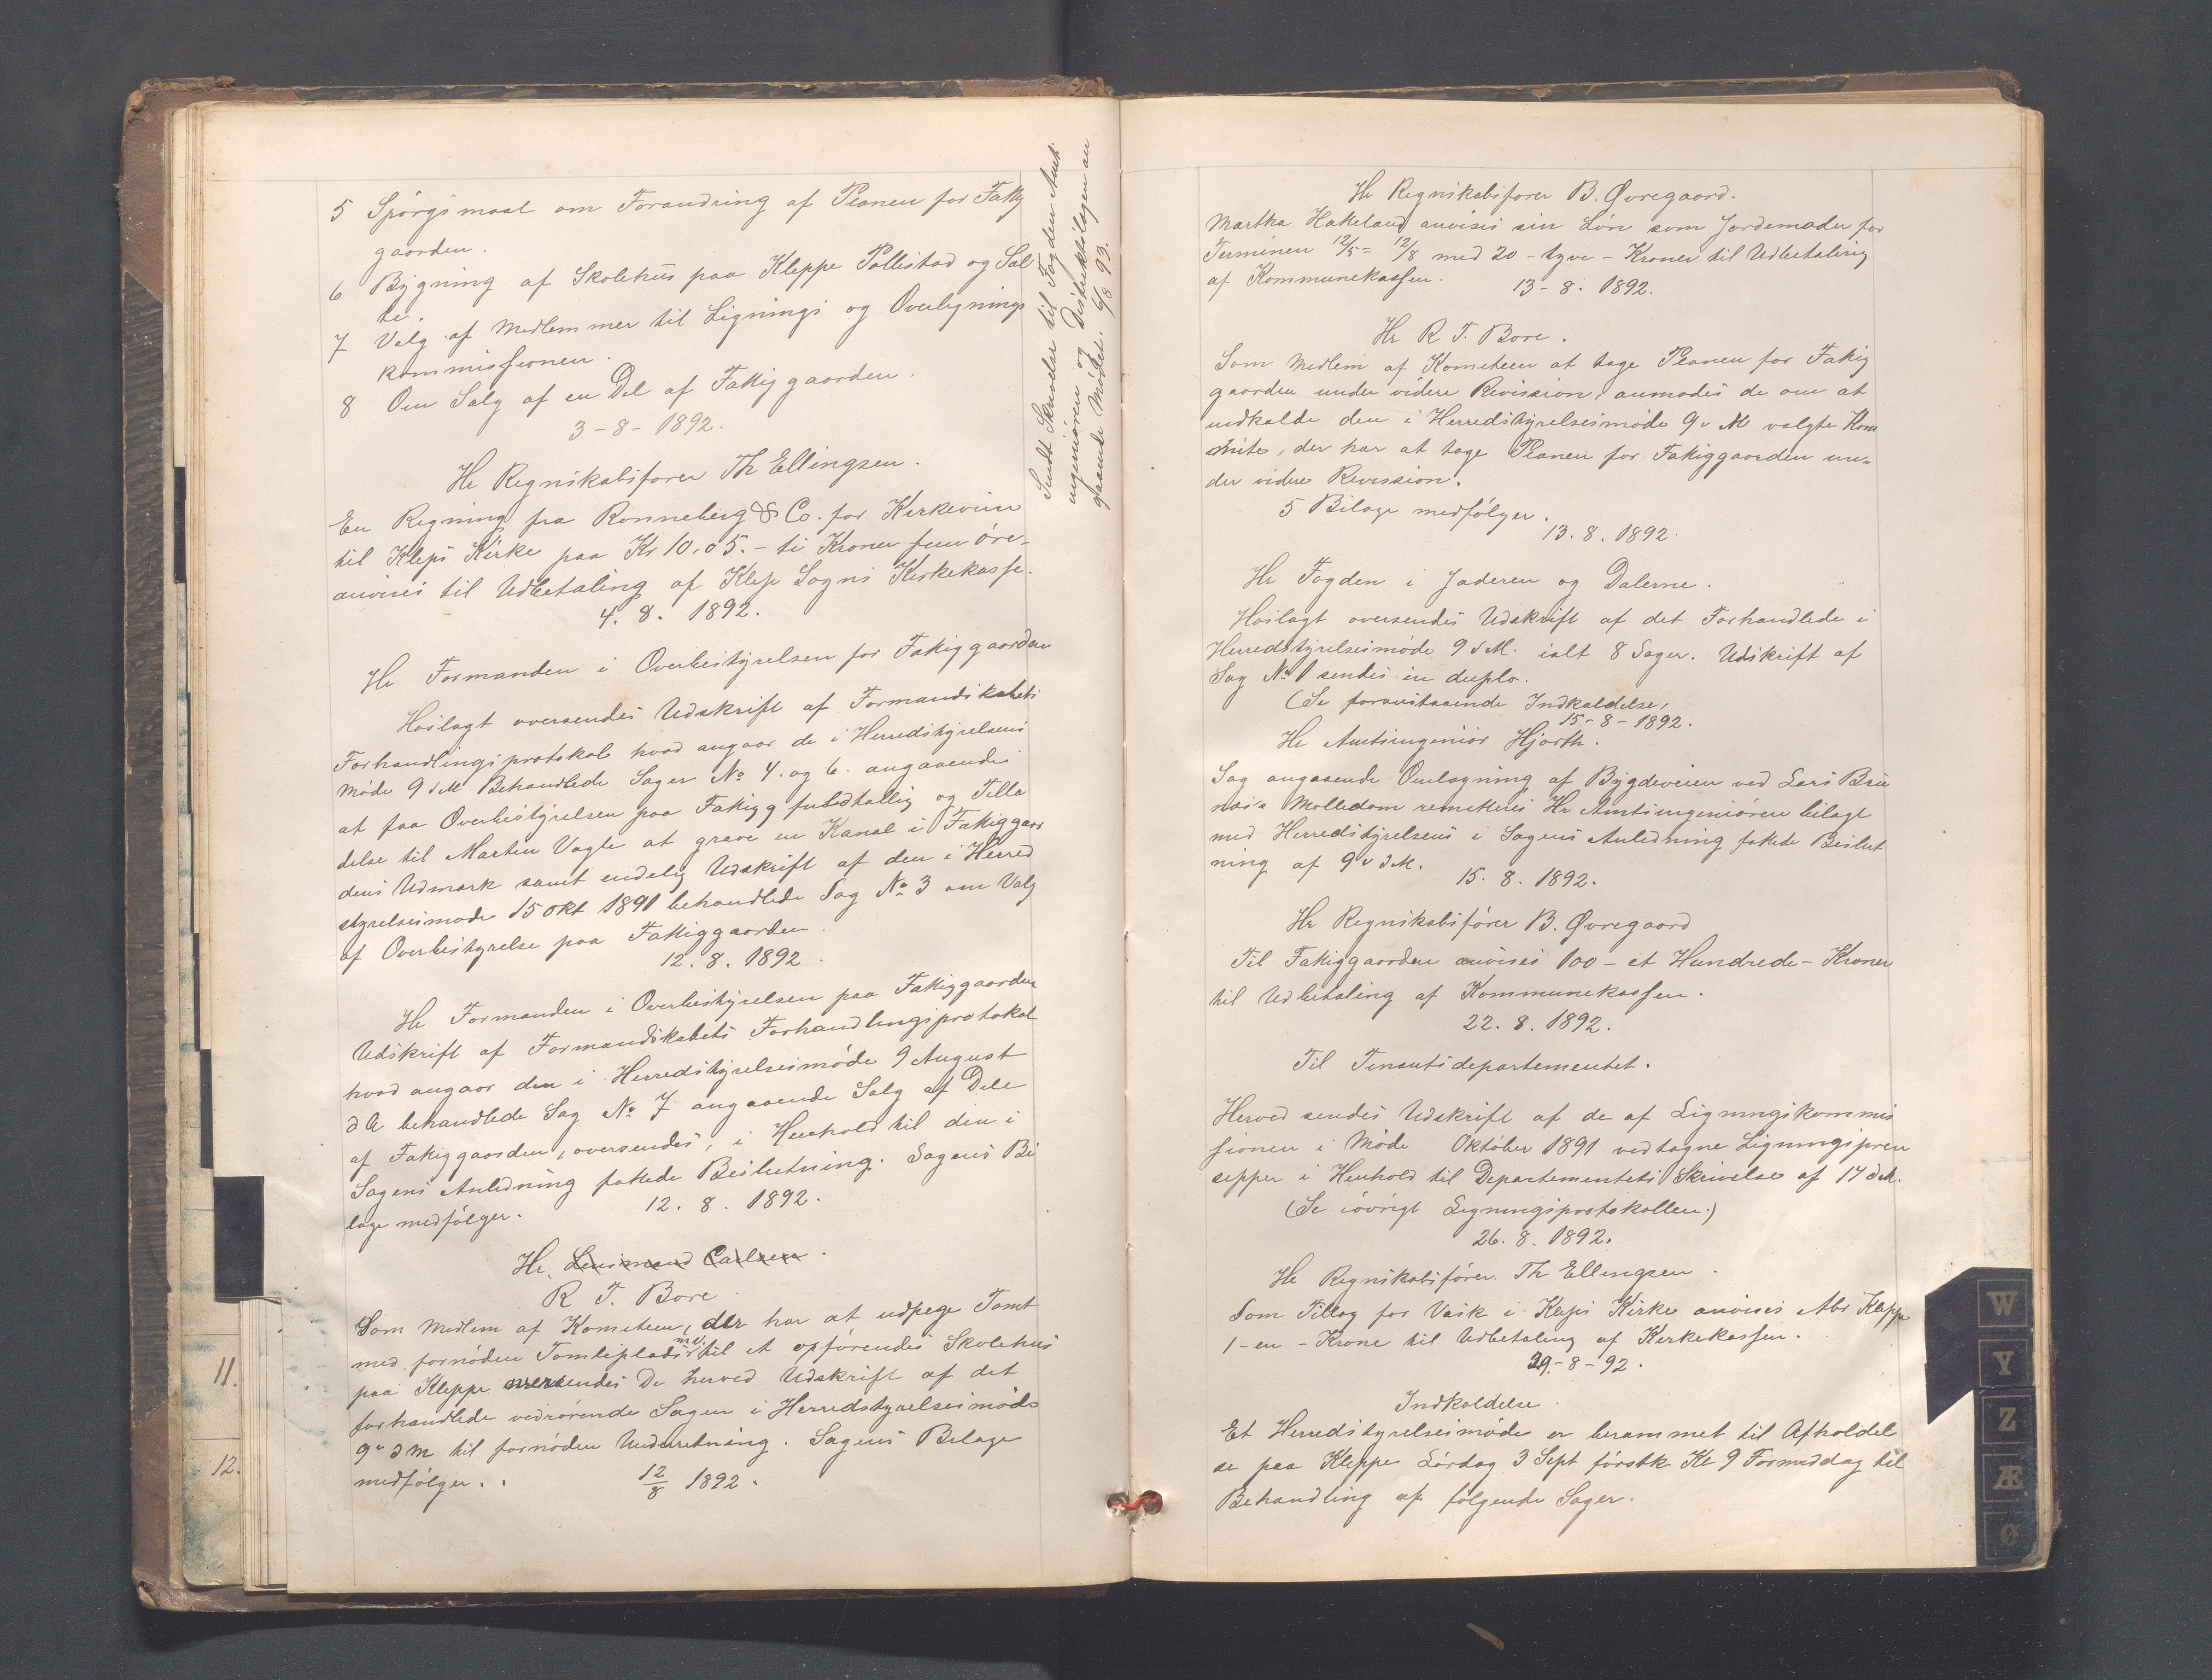 5 Spörgsmaal om Forandring af Planen for Fattig
gaarden.
6 Bygning af Skolehus paa Kleppe Pollestad og Sal
te.
7 Valg af Medlemmer til Lignings og Overlignings
kommissionen.
8 Om Salg af en Del af Fattiggaarden.
3-8-1892.
Hr Regnskabsfører Th Ellingsen.
En Regning fra Rønneberg & Co. for Kirkevin
til Kleps Kirke paa Kr 10,05.- ti Kroner fem öre-
anvises til Udbetaling af Klep Sogns Kirkekasse.
4. 8. 1892.
Hr Formanden i Overbestyrelsen for Fattiggaarden
Hoslagt oversendes Udskrift af Formandskabets
Forhandlingsprotokol hvad angaar de i Herredstyrelsens
Möde 9 d M Behandlede Sager No 4. og 6. angaaende
at faa Overbestyrelsen paa Fattigg fuldtallig og Tilla
delse til Martin Vagle at grave en Kanal i Fattiggaar
dens Udmark samt endelig Udskrift af den i Herred
styrelsesmöde 15 Okt 1891 behandlede Sag No 3 om Valg
af Overbestyrelse paa Fattiggaarden.
12. 8. 1892.
Hr Formanden i Overbestyrelsen paa Fattiggaarden
Udskrift af Formandskabets Forhandlingsprotokol
hvad angaar den i Herredstyrelsesmöde 9 August
d A behandlede Sag No 7 angaaende Salg af Dele
af Fattiggaarden, oversendes, i Henhold til den i
Sagens Anledning fattede Beslutning. Sagens Bi
lage medfölger. 12. 8. 1892.
Hr. Lensmand Carlsen.
R T. Bore
Som Medlem af Kometeen, der har at udpege Tomt
med fornöden Tomteplads m.v. til et opförendes Skolehus
paa Kleppe oversendes De herved Udskrift af det
forhandlede vedrörende Sagen i Herredstyrelsesmöde
9 d M til fornöden Underretning. Sagens Bilage
medfölger. 12/8 1892.
Sendt Skrivelse til Fogden Amts
ingeniören og Distriktslægen an
gaaende Mödet. 6/8 93.
Hr Regnskabsfører B. Øvregaard.
Martha Hakeland anvises sin Lön som Jordemoder for
Terminen 12/5 = 12/8 med 20 - tyve - Kroner til Udbetaling
af Kommunekassen. 13-8. 1892.
Hr R T. Bore.
Som Medlem af Kometeen at tage Planen for Fattig
gaarden under videre Revission, anmodes de om at
indkalde den i Herredstyrelsesmöde 9 d M valgte Kom
mite, der har at tage Planen for Fattiggaarden un-
der videre Revission.
5 Bilage medfölger.
13. 8. 1892.
Hr Fogden i Jæderen og Dalerne.
Hoslagt oversendes Udskrift af det Forhandlede i
Herredstyrelsesmöde 9 d M. ialt 8 Sager. Udskrift af
Sag No 1 sendes in duplo.
(Se foranstaaende Indkaldelse,
15-8-1892.
Hr Amtsingeniör Hjorth.
Sag angaaende Omlægning af Bygdeveien ved Lars Bru
næs's Mölledam remitteres Hr Amtsingeniören bilagt
med Herredstyrelsens i Sagens Anledning fattede Beslut
ning af 9 d M.
15. 8. 1892.
Hr Regnskabsförer B. Øvregaard
Til Fattiggaarden anvises 100 - et Hundrede - Kroner
til Udbetaling af Kommunekassen.
22. 8. 1892.
Til Finantsdepartementet.
Herved sendes Udskrift af de af Ligningskommis
sionen i Möde Oktober 1891 vedtagne Ligningsprin
sipper i Henhold til Departementets Skrivelse af 17 d M.
(Se iövrigt Ligningsprotokollen.)
26. 8. 1892.
Hr Regnskabsförer Th Ellingsen.
Som Tillæg for Vask i Kleps Kirke anvises Abr Kleppe
1 - en - Krone til Udbetaling af Kirkekassen.
29-8-92.
Indkaldelse.
Et Herredstyrelsesmöde er berammet til Afholdel
se paa Kleppe Lördag 3 Sept förstk Kl 9 Formiddag til
Behandling af fölgende Sager.
11.
12.
W
Y
Z
Æ
Ø